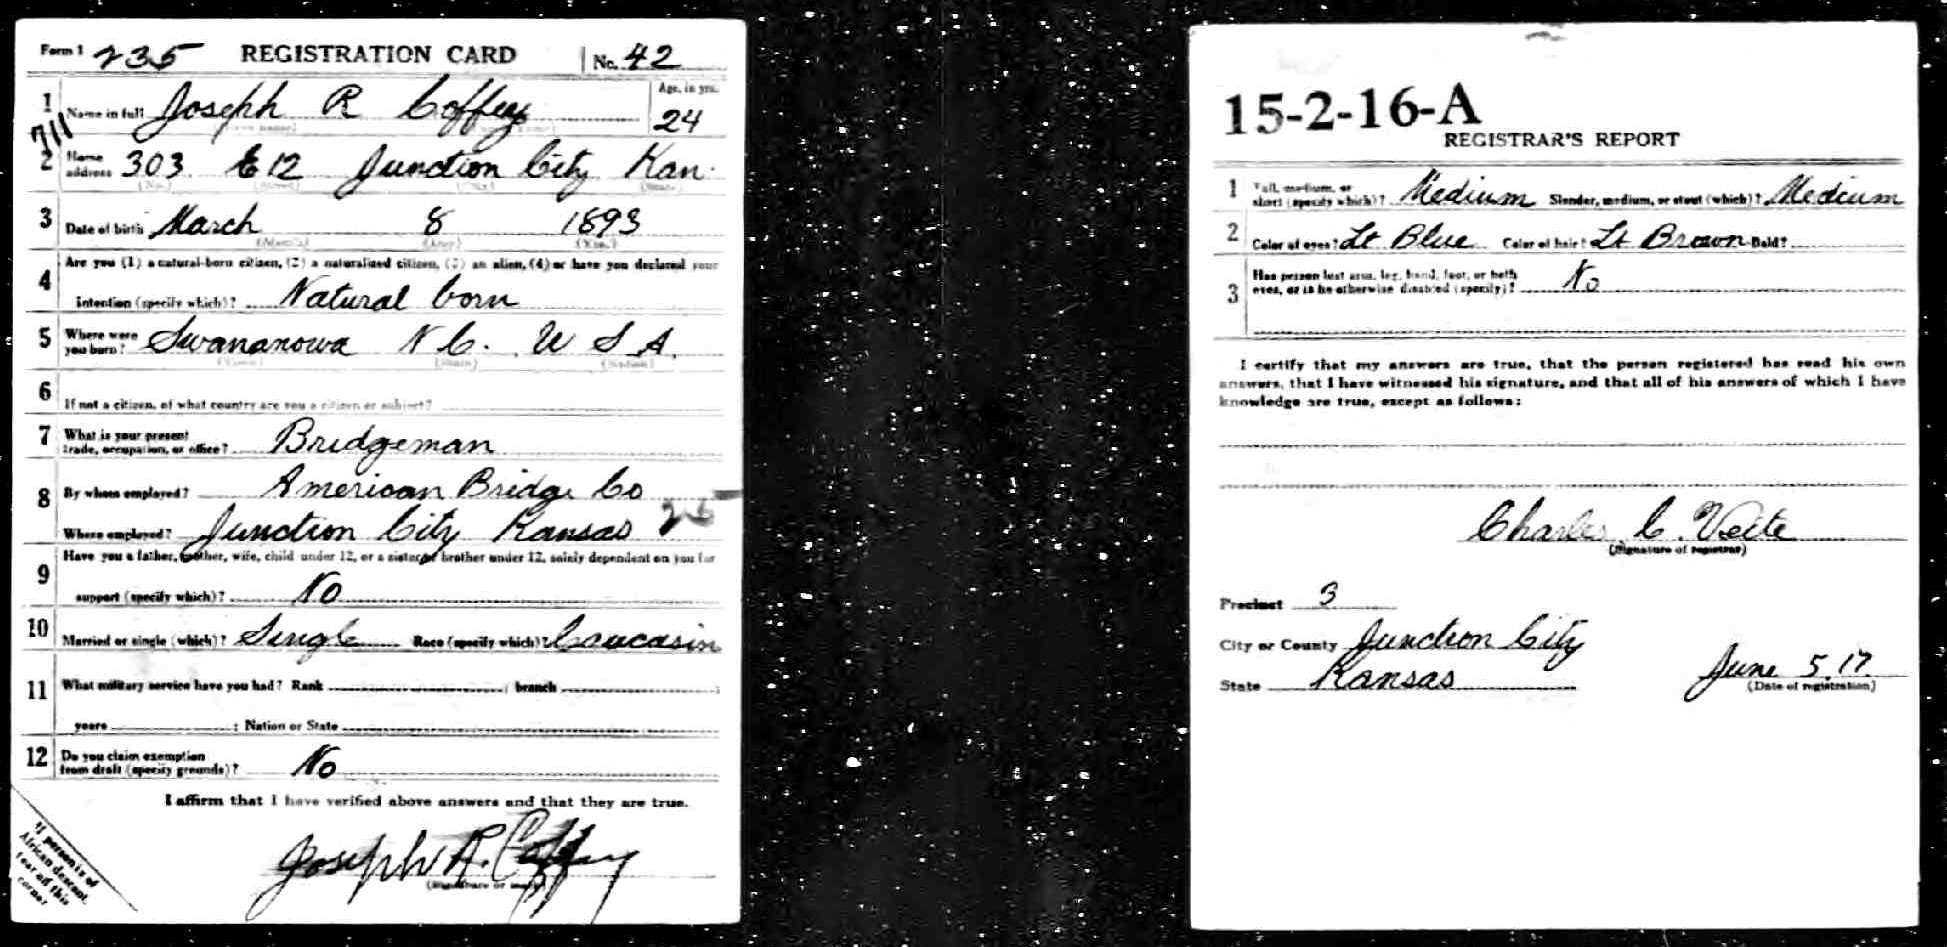 Form 1 235 REGISTRATION CARD No. 42
1 Name in full Joseph R Coffey Age, in yrs. 24
711
2 Home address 303 E 12 Junction City Kan.
(No.) (Street) (City) (State)
3 Date of birth March 8 1893
(Month) (Day) (Year)
4 Are you (1) a natural-born citizen, (2) a naturalized citizen, (3) an alien, (4) or have you declared your
intention (specify which)? Natural born
5 Where were you born? Swananowa N C. U S A.
(Town) (State) (Nation)
6 If not a citizen, of what country are you a citizen or subject?
7 What is your present trade, occupation, or office? Bridgeman
8 By whom employed? American Bridge Co
Where employed? Junction City Kansas 26
9 Have you a father, mother, wife, child under 12, or a sister or brother under 12, solely dependent on you for
support (specify which)? No
10 Married or single (which)? Single Race (specify which)? Caucasin
11 What military service have you had? Rank ; branch ;
years ; Nation or State
12 Do you claim exemption from draft (specify grounds)? No
I affirm that I have verified above answers and that they are true.
Joseph R. Coffey
(Signature or mark)
If person is of
African descent,
tear off this
corner
15-2-16-A
REGISTRAR'S REPORT
1 Tall, medium, or short (specify which)? Medium Slender, medium, or stout (which)? Medium
2 Color of eyes? Lt Blue Color of hair? Lt Brown Bald?
3 Has person lost arm, leg, hand, foot, or both
eyes, or is he otherwise disabled (specify)? No
I certify that my answers are true, that the person registered has read his own
answers, that I have witnessed his signature, and that all of his answers of which I have
knowledge are true, except as follows:
Charles C. Veite
(Signature of registrar)
Precinct 3
City or County Junction City
State Kansas June 5, 17.
(Date of registration)